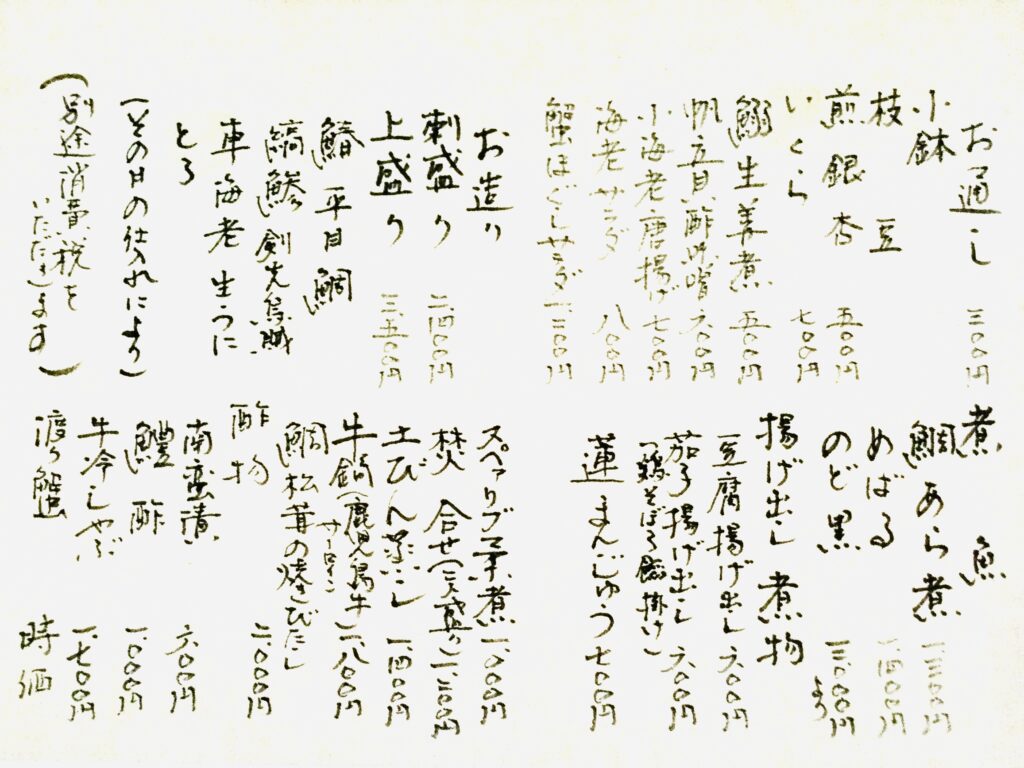 お通し 三〇〇円
小鉢
枝豆
煎銀杏 五〇〇円
いくら 七〇〇円
鰯生姜煮 五〇〇円
帆立貝酢味噌 六〇〇円
小海老唐揚げ 七〇〇円
海老サラダ 八〇〇円
蟹ほぐしサラダ 一、二〇〇円
お造り
刺盛り 二、四〇〇円
上盛り 三、五〇〇円
鰆 平目 鯛
縞鯵 剣先烏賊
車海老 生うに
とろ
(その日の仕入れにより)
(別途消費税を
いただきます)
煮魚
鯛あら煮 一、三〇〇円
めばる 一、四〇〇円
のど黒 三、〇〇〇円
より
揚げ出し 煮物
豆腐揚げ出し 六〇〇円
茄子揚げ出し 六〇〇円
(鶏そぼろ餡掛け)
蓮まんじゅう 七〇〇円
スペアリブ 煮 一、〇〇〇円
焚合せ(三点盛り) 一、二〇〇円
土びん蒸し 一、四〇〇円
牛鍋(鹿児島牛) 一、八〇〇円
サーロイン
鯛松茸の焼きびたし 二、〇〇〇円
酢物
南蛮漬 六〇〇円
鱧酢 一、〇〇〇円
牛冷しゃぶ 一、七〇〇円
渡り蟹 時価